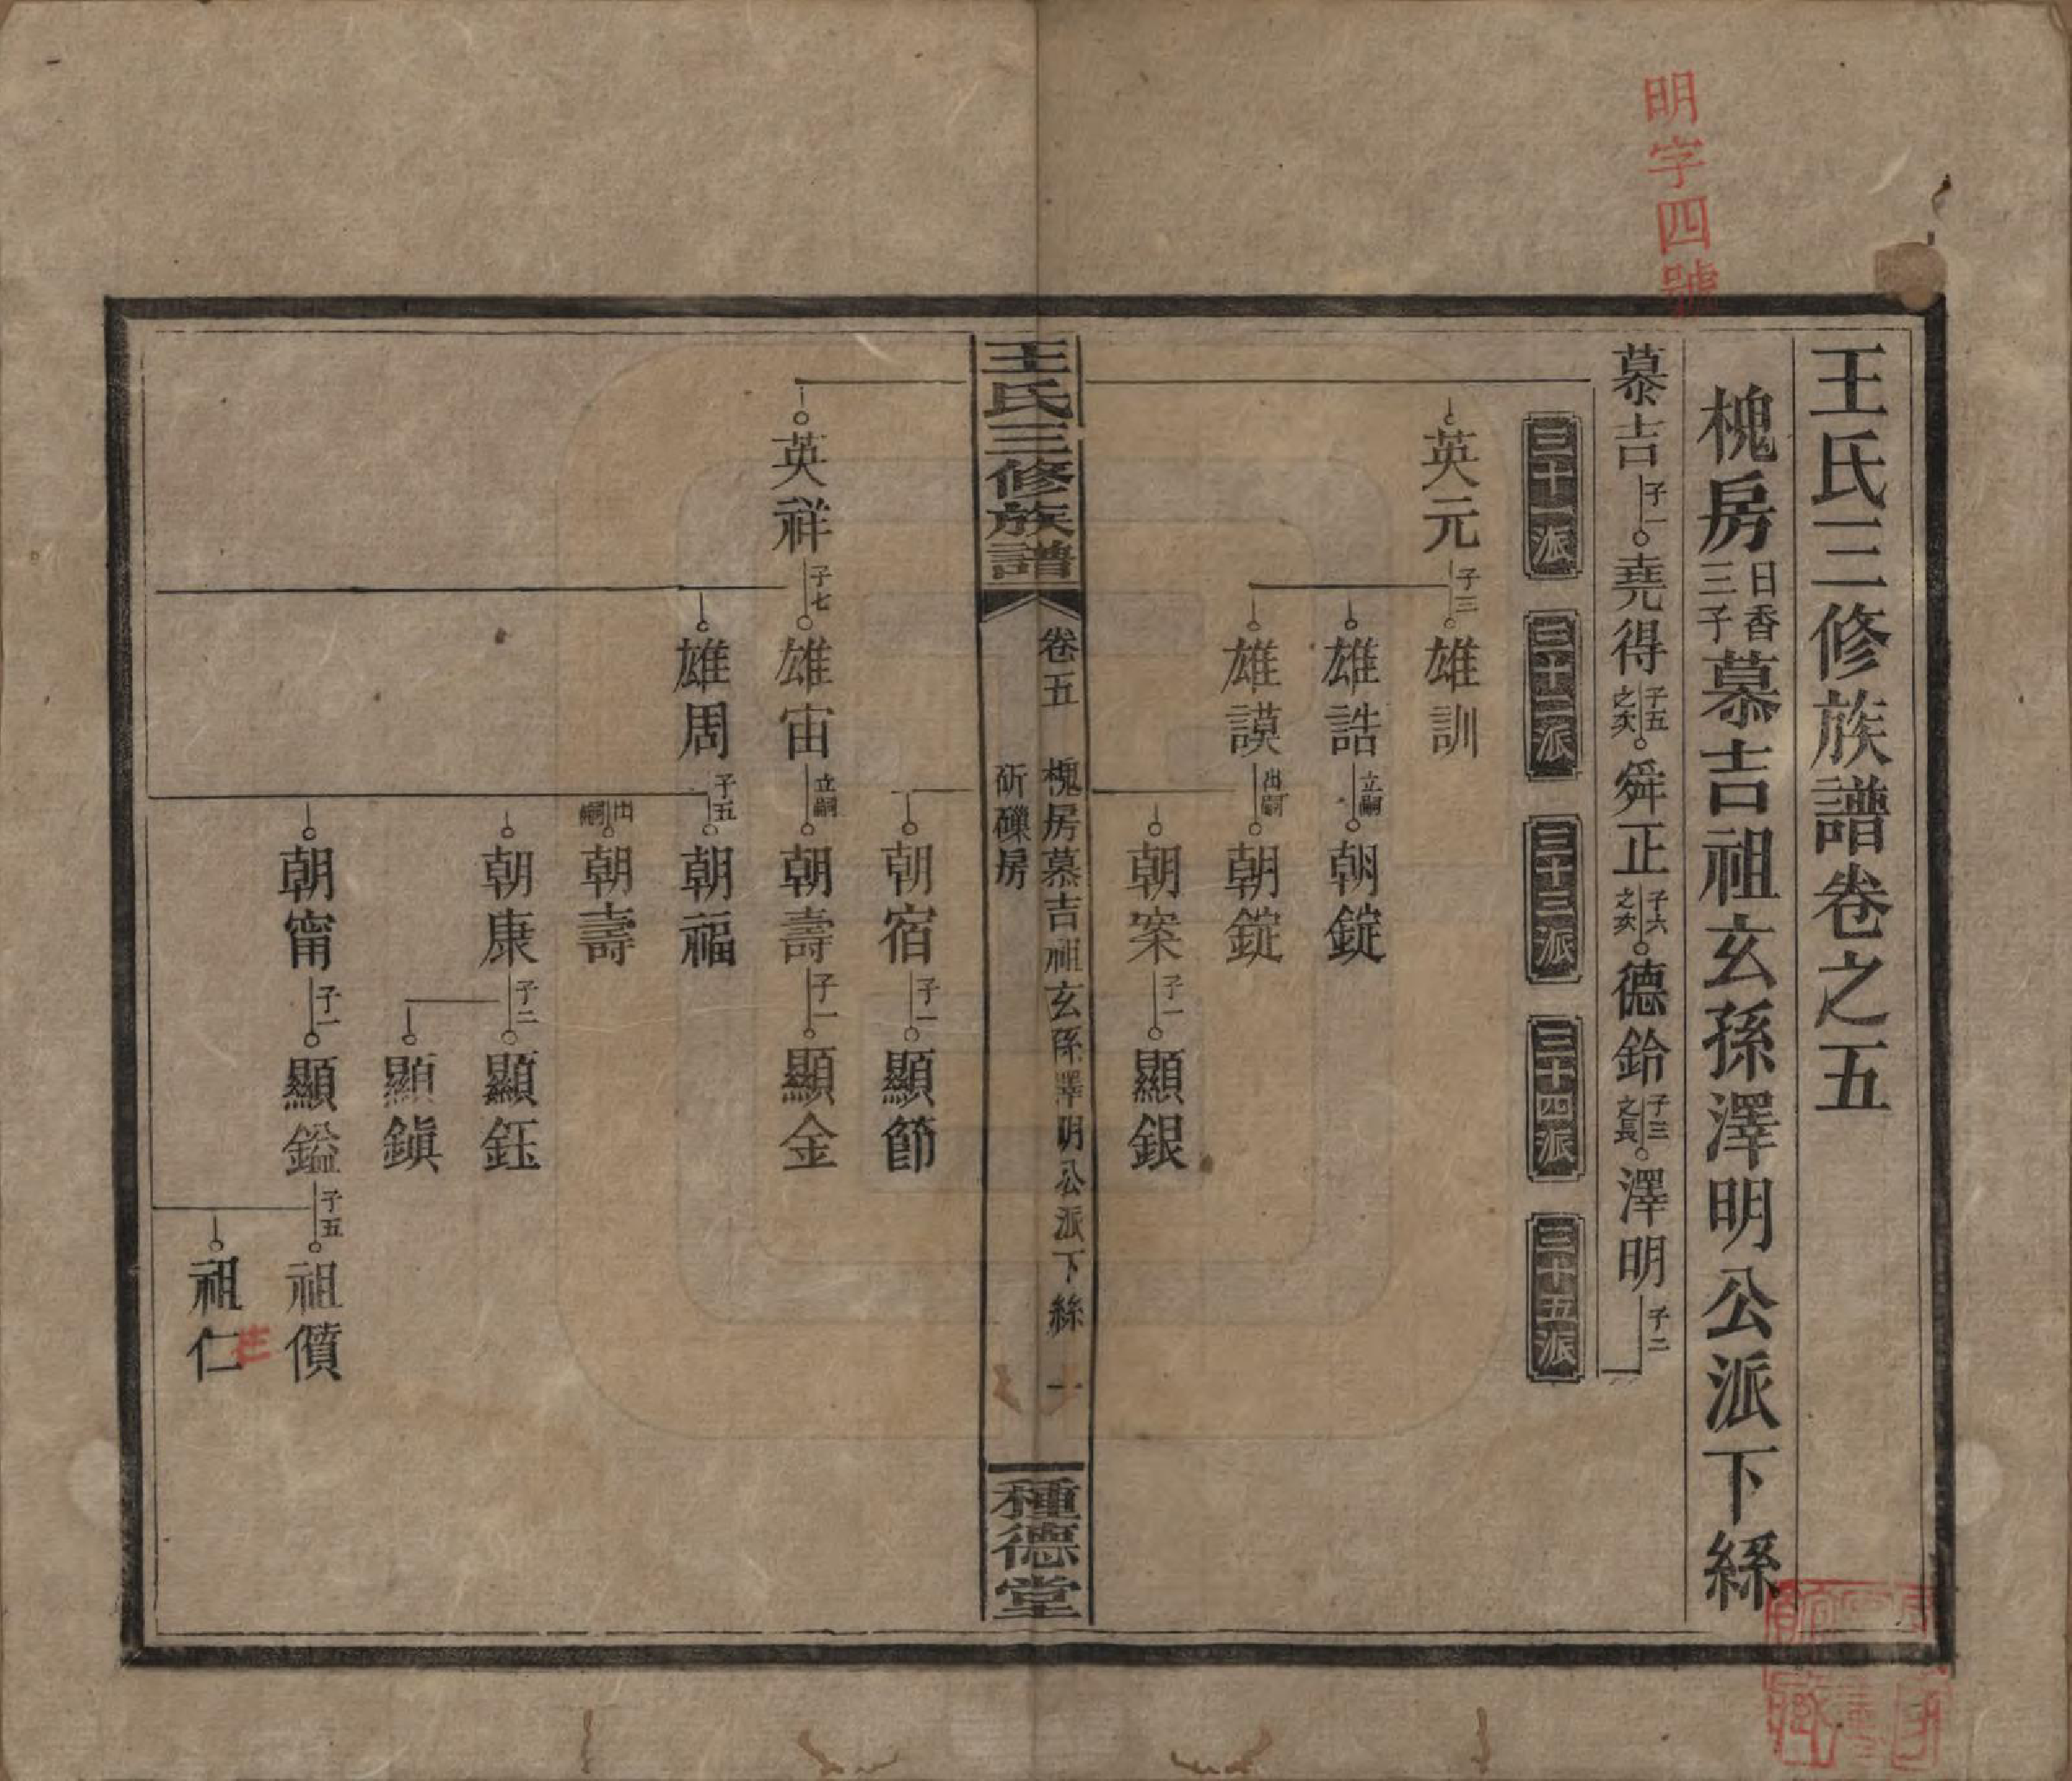 明字四號
王氏三修族譜卷之五
槐房日香三子慕吉祖玄孫澤明公派下系
慕吉 子一 堯得 子五之次 舜正 子六之次 德鈴 子三之長 澤明 子二
三十一派 三十二派 三十三派 三十四派 三十五派
英元 子三 雄訓
雄誥 立嗣 朝錠
雄謨 出嗣 朝錠
朝案 子一 顯銀
王氏三修族譜 卷五 槐房慕吉祖玄孫澤明公派下系 一 種德堂
斫礫房
朝宿 子一 顯節
英祥 子七 雄宙 立嗣 朝壽 子一 顯金
雄周 子五 朝福
出嗣 朝壽
朝康 子二 顯鈺
顯鎮
朝甯 子一 顯鎰 子五 祖儥
祖仁